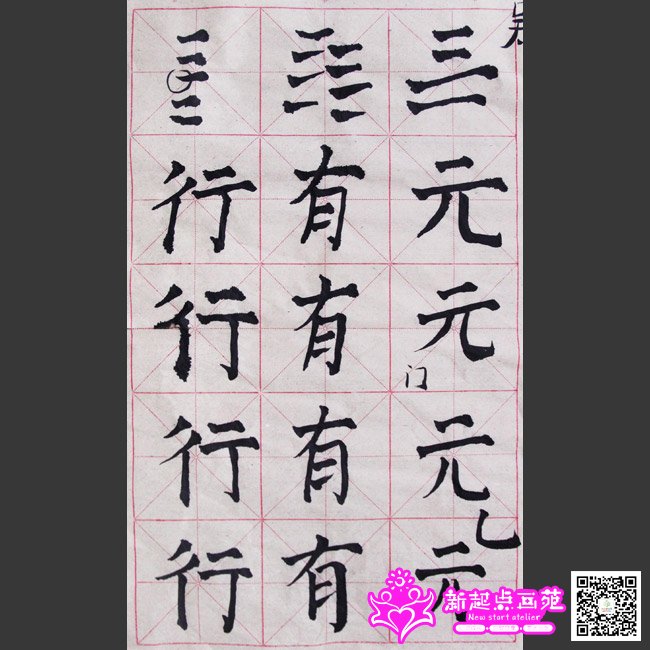 三元元元元
门
有有有有
行行行行
新起点画苑
New start atelier